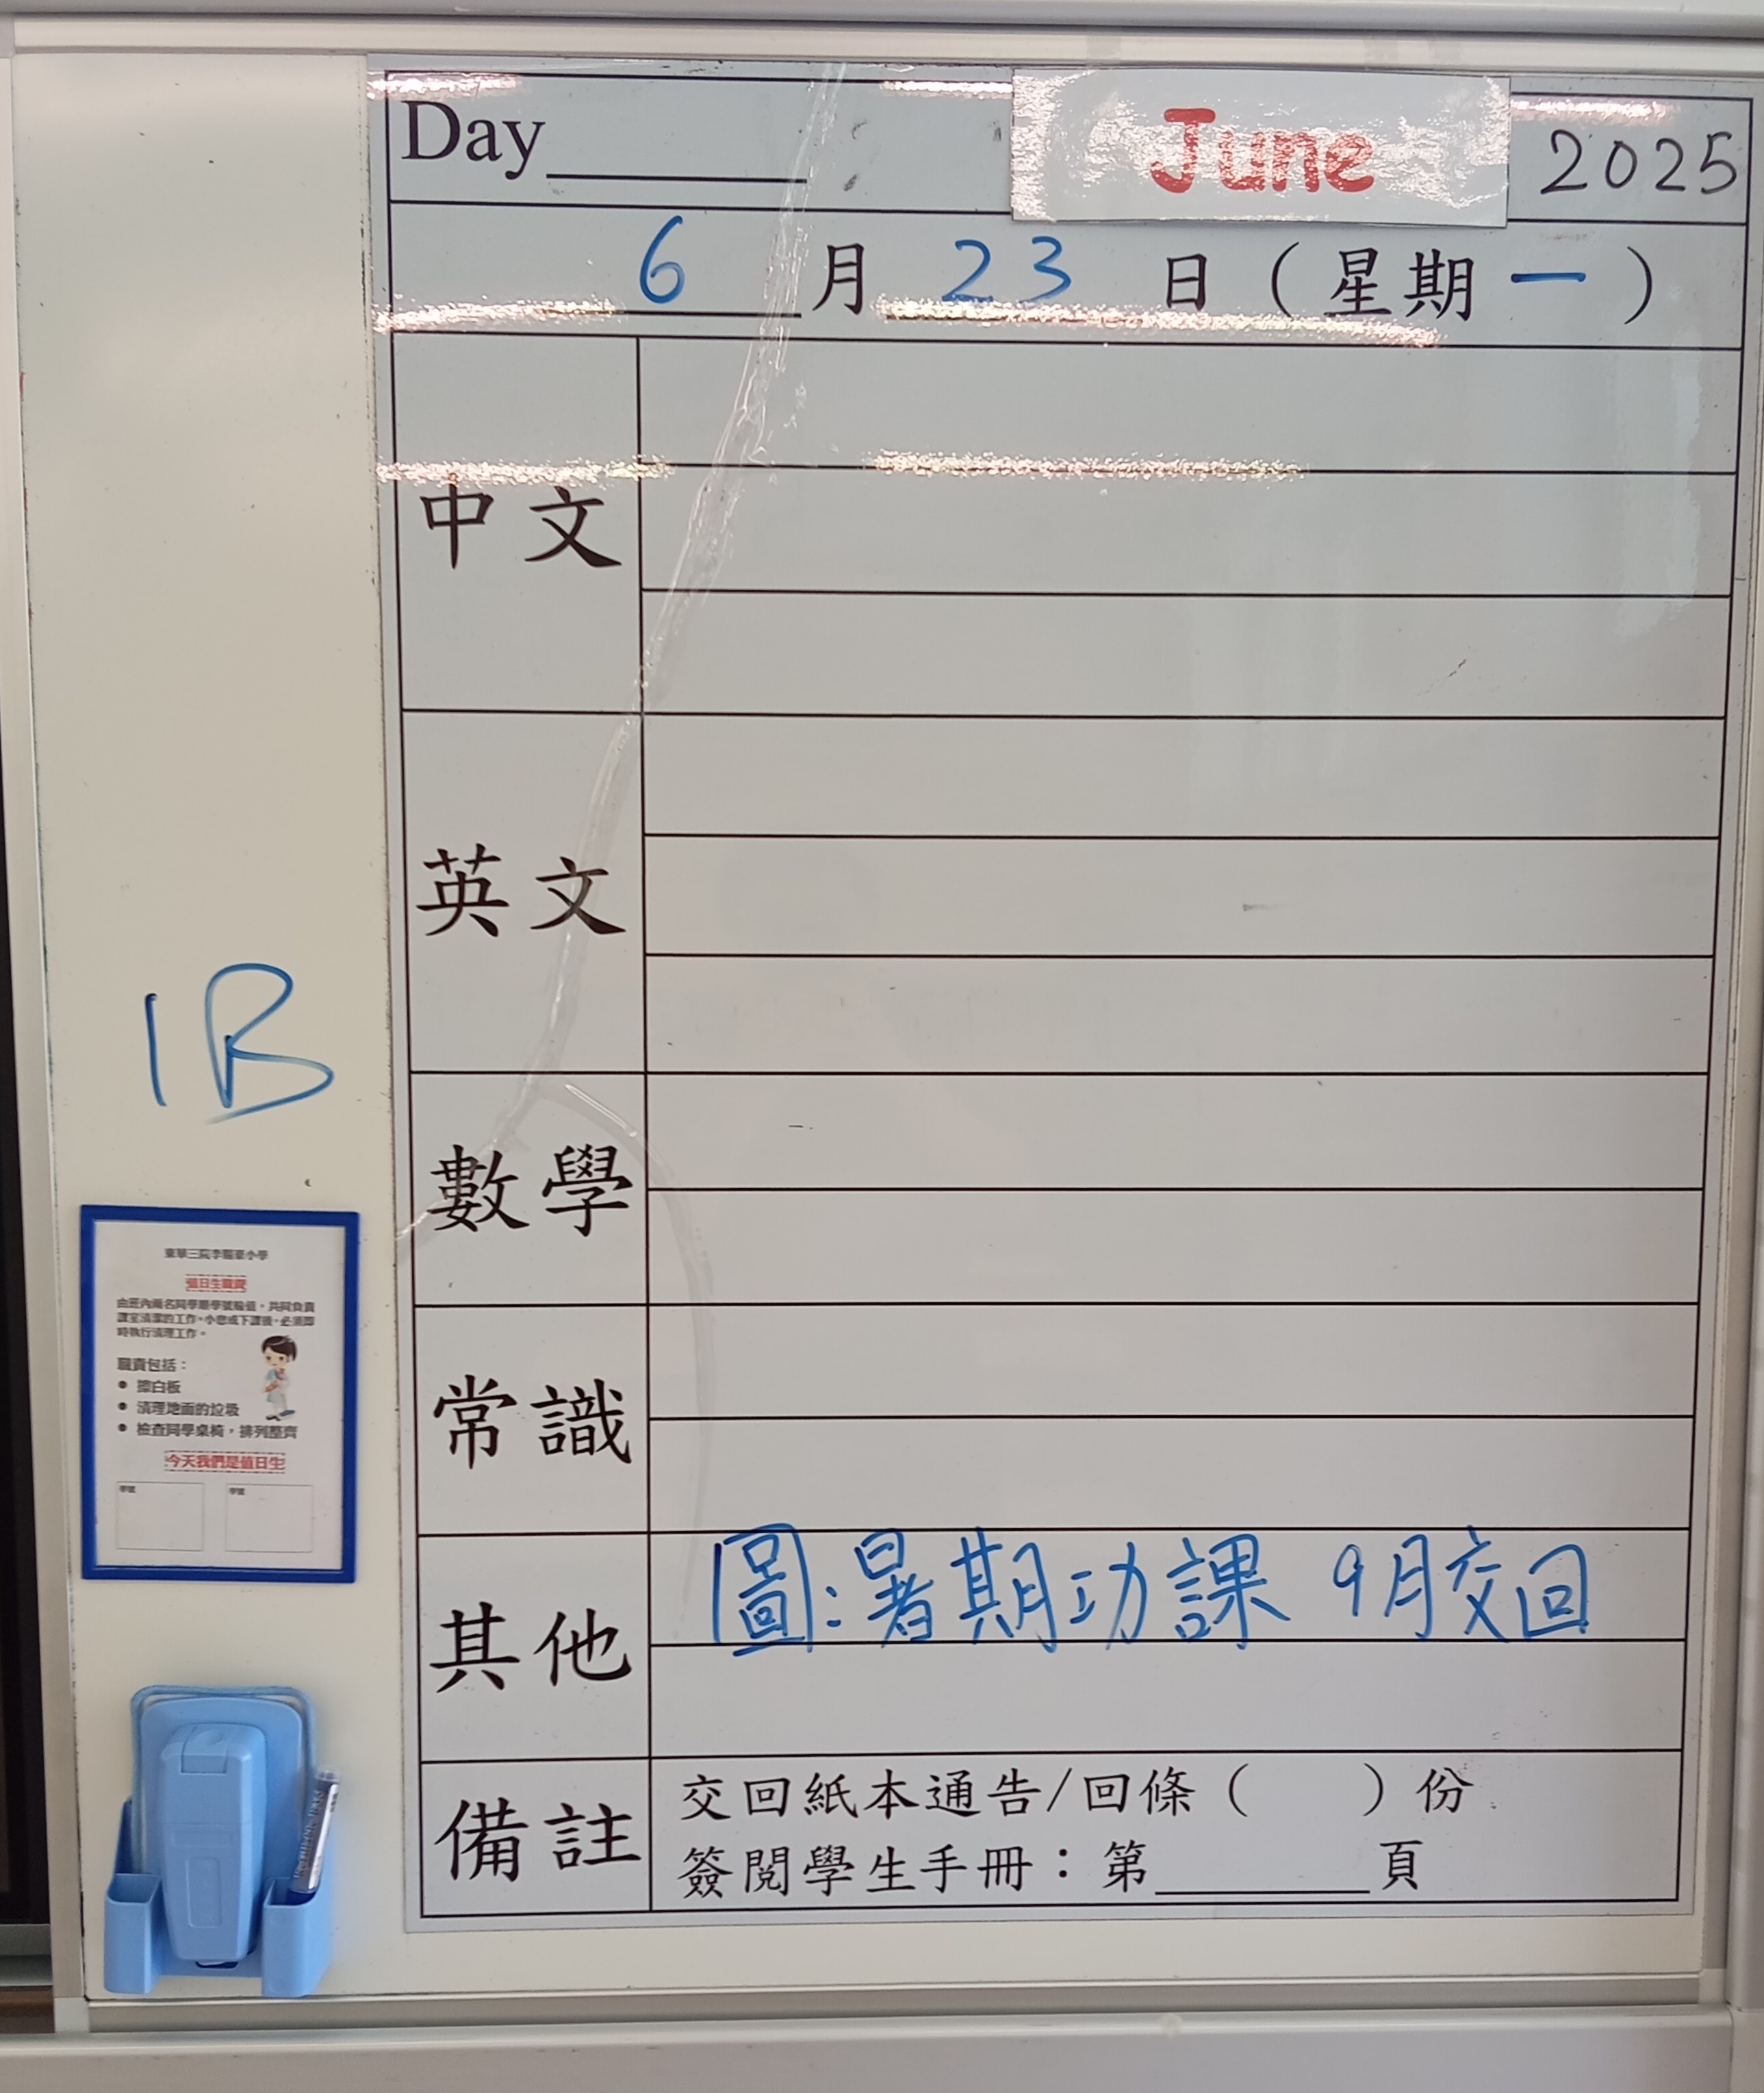 Day
June
2025
6月23日（星期一）
中文
英文
1B
數學
常識
其他
圖:暑期功課 9月交回
備註
交回紙本通告/回條（　　）份
簽閱學生手冊：第＿＿＿＿頁
值日生職責
由班內兩名同學順學號輪值，共同負責
課室清潔的工作。小息或下課後，必須即
時執行清理工作。
職責包括：
● 擦白板
● 清理地面的垃圾
● 檢查同學桌椅，排列整齊
今天我們是值日生
學號 學號